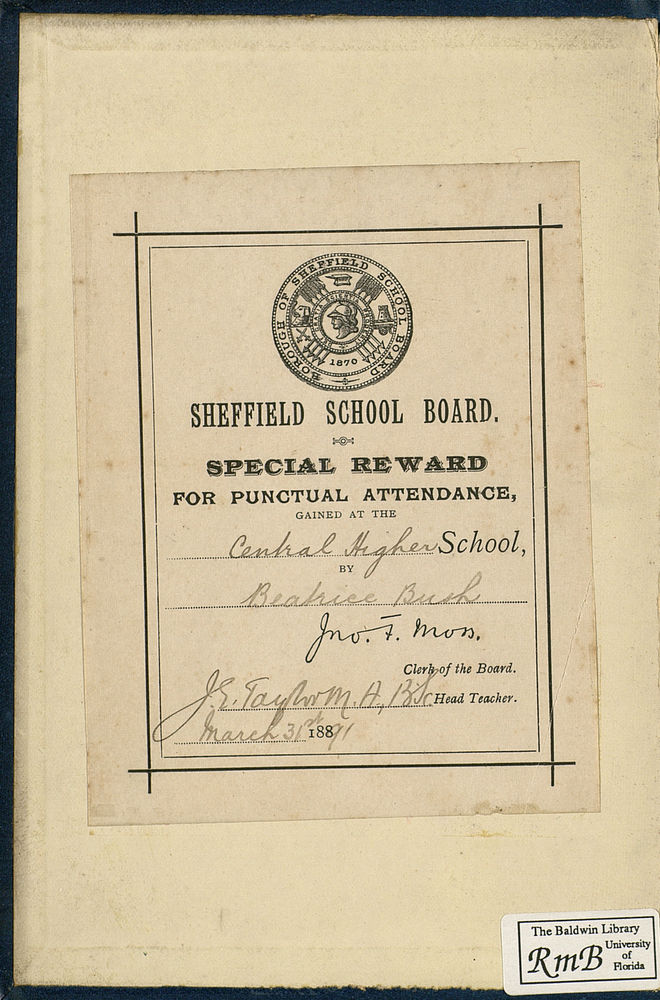 BOROUGH OF SHEFFIELD SCHOOL BOARD
1870
SHEFFIELD SCHOOL BOARD.
SPECIAL REWARD
FOR PUNCTUAL ATTENDANCE,
GAINED AT THE
Central Higher School,
BY
Beatrice Bush
Jno. F. Moss.
Clerk of the Board.
J.E. Taylor M.A, BSc Head Teacher.
March 31st 18891
The Baldwin Library
RmB University
of
Florida